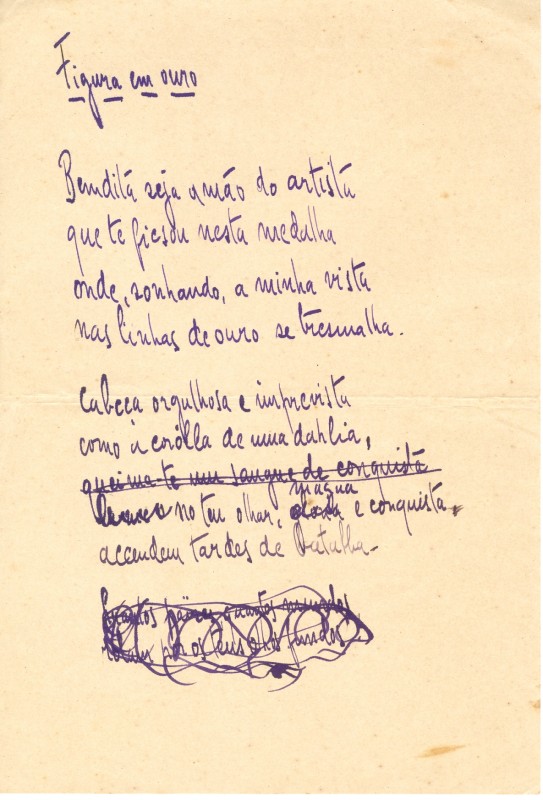 Figura em ouro
Bemdita seja a mão do artista
que te fixou nesta medalha
onde, sonhando, a minha vista
nas linhas de ouro se tresmalha.
Cabeça orgulhosa e imprevista
como a corólla de uma dahlia,
queima-te um sangue de conquista
no teu olhar, magua e conquista
accendem tardes de batalha.